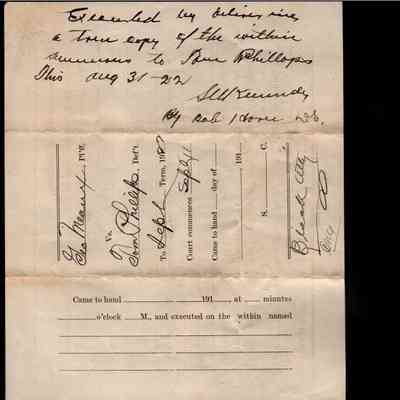 Executed by delivering
a true copy of the within
summons to Tom Phillips
this aug 31-22
S W Kennedy
By Bob
Geo Meaux Pl'ff.
Vs.
Tom Phillips Def't.
To Sept Term, 19
Court commences Sept
Came to hand day of
191
S. C.
Black Atty
Came to hand 191 , at minutes
o'clock M., and executed on the within named